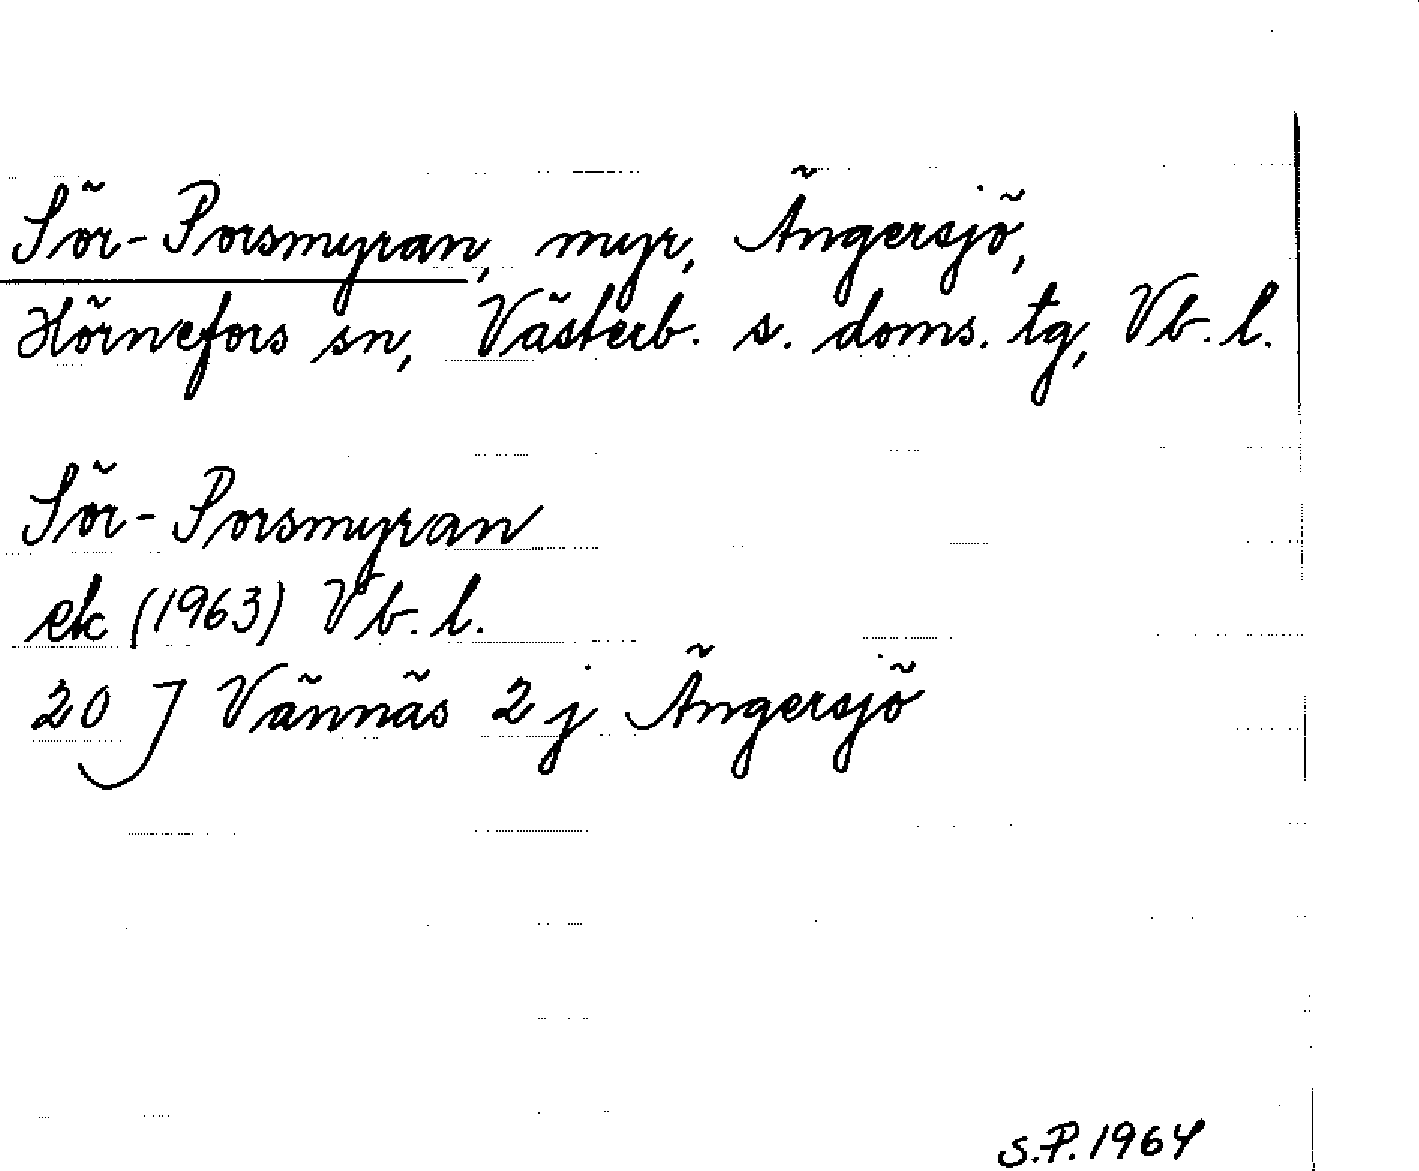 Sör-Porsmyran, myr, Ängersjö,
Hörnefors sn, Västerb. s. doms. tg, Vb. l.
Sör-Porsmyran
ek (1963) Vb. l.
20 J Vännäs 2 j Ängersjö
S.P. 1964